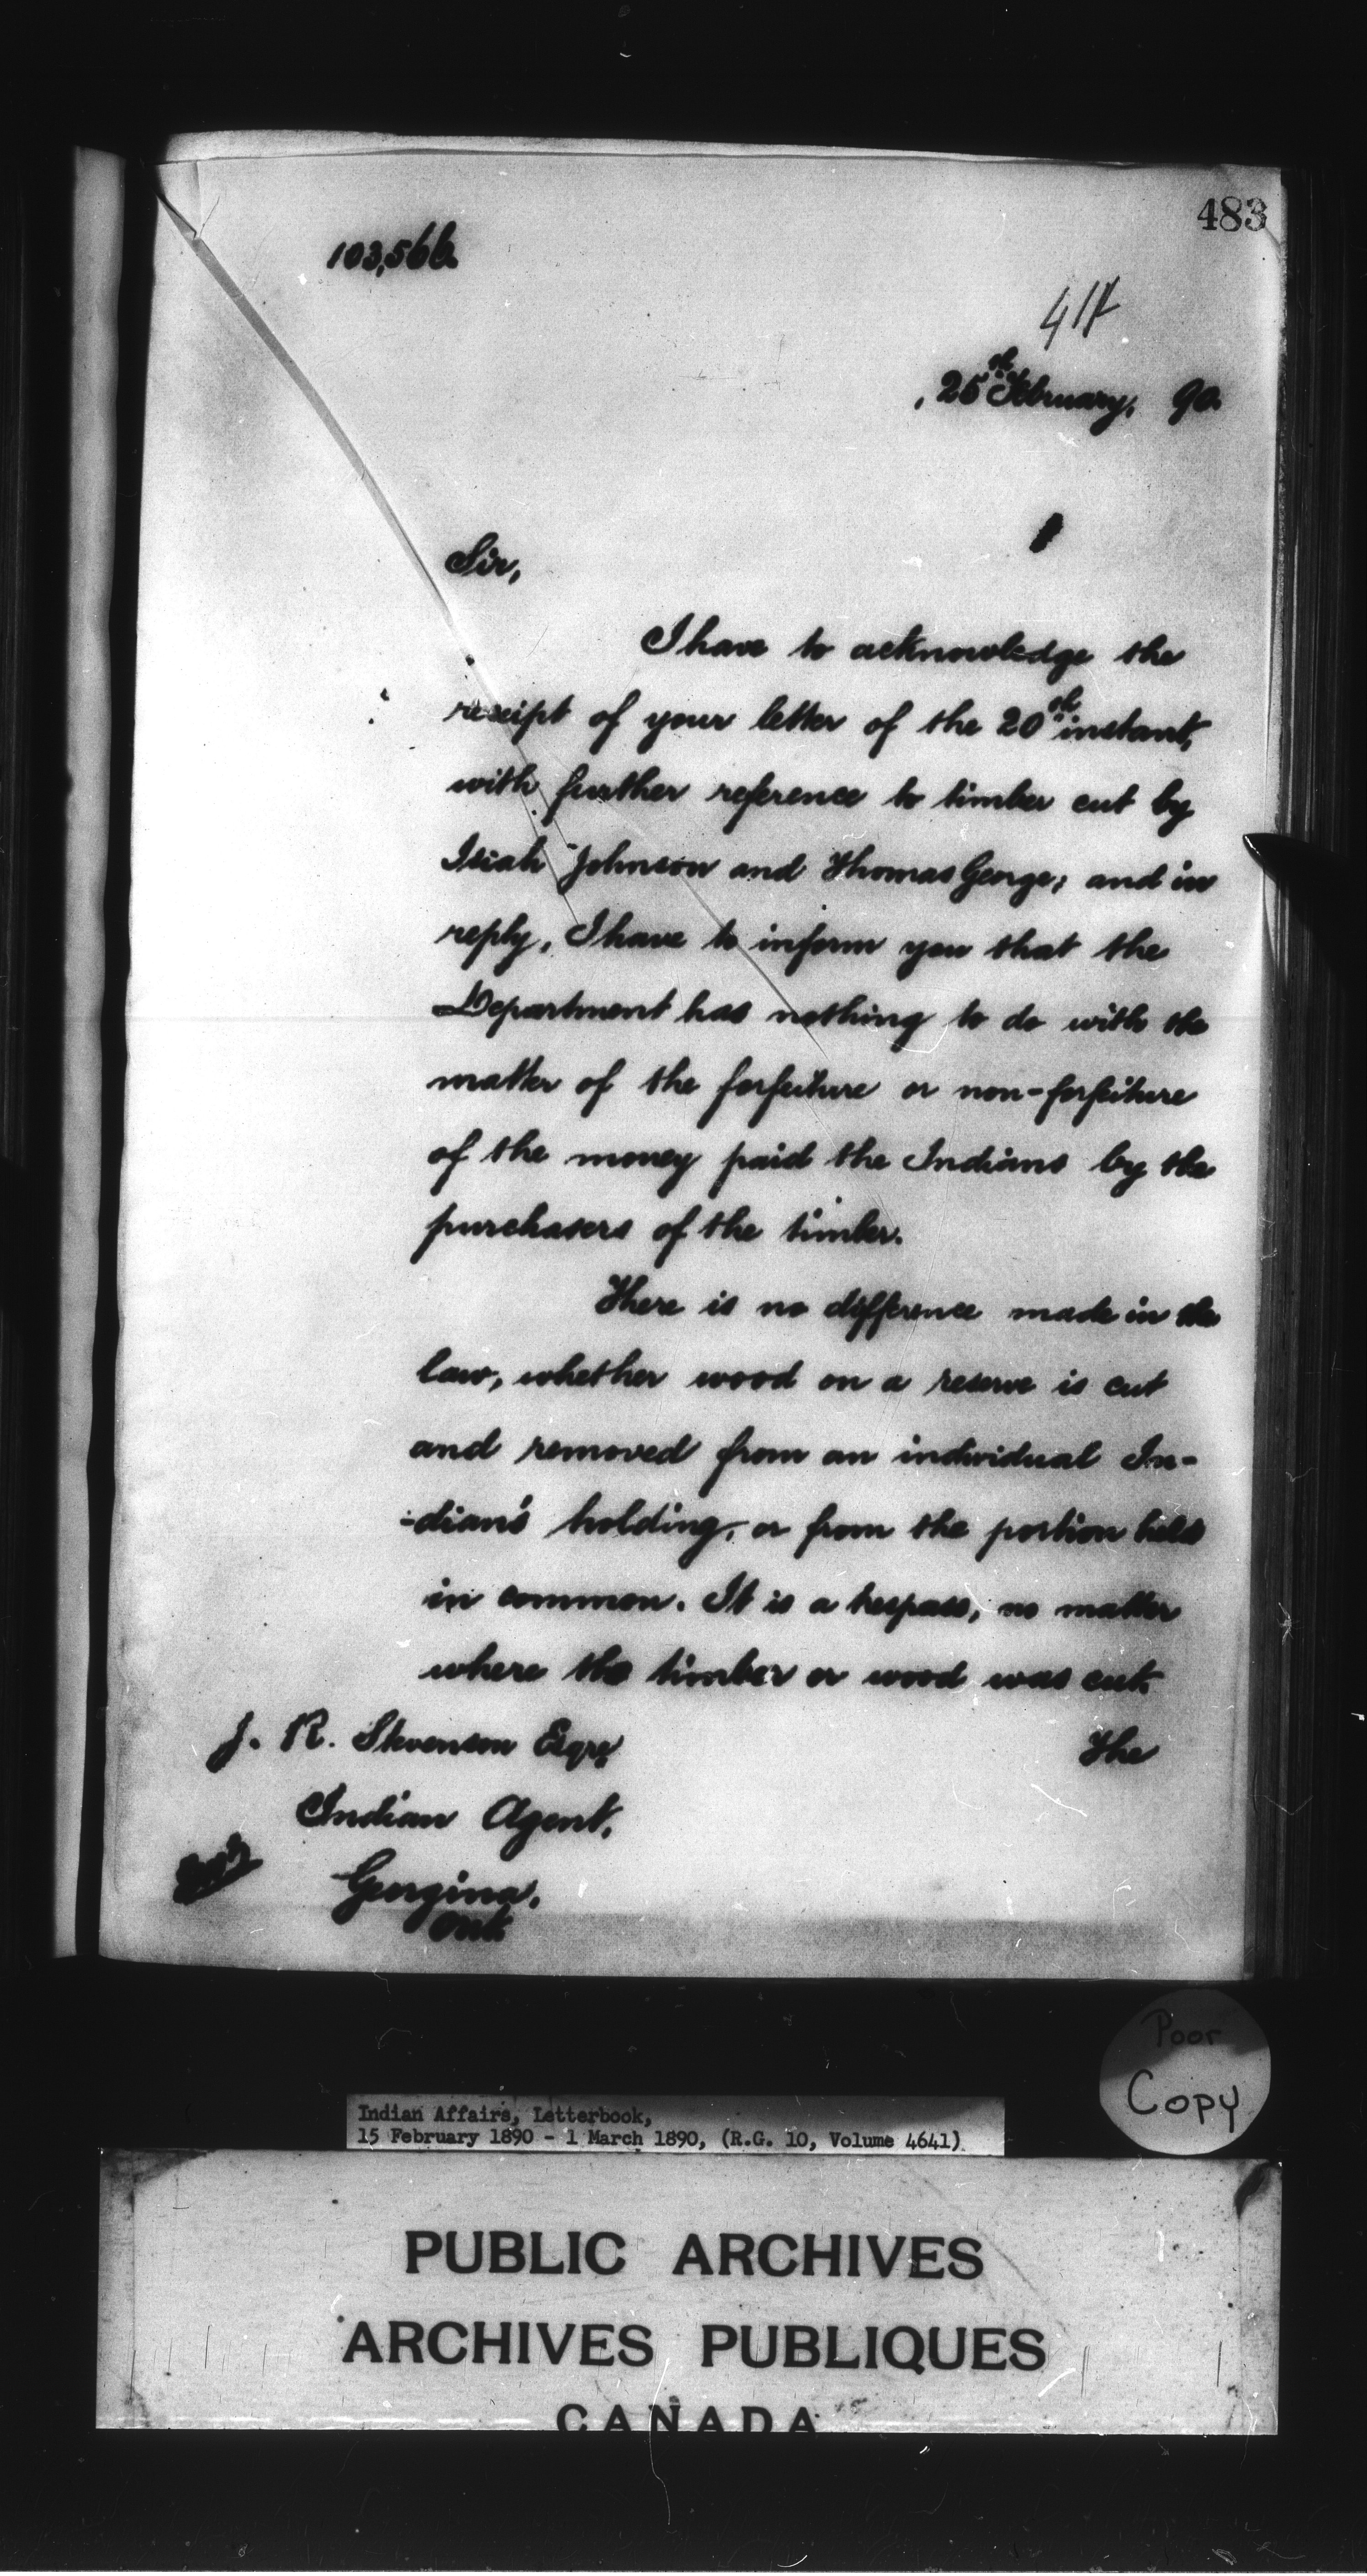 483
103,566.
25th February, 90.
Sir,
I have to acknowledge the
receipt of your letter of the 20th instant,
with further reference to timber cut by
Isiah Johnson and Thomas George; and in
reply, I have to inform you that the
Department has nothing to do with the
matter of the forfeiture or non-forfeiture
of the money paid the Indians by the
purchasers of the timber.
There is no difference made in the
law, whether wood on a reserve is cut
and removed from an individual In-
-dian's holding, or from the portion held
in common. It is a trespass, no matter
where the timber or wood was cut.
The
J. R. Stevenson Esqre,
Indian Agent,
Georgina,
Ont.
Poor
Copy
Indian Affairs, Letterbook,
15 February 1890 - 1 March 1890, (R.G. 10, Volume 4641)
PUBLIC ARCHIVES
ARCHIVES PUBLIQUES
CANADA